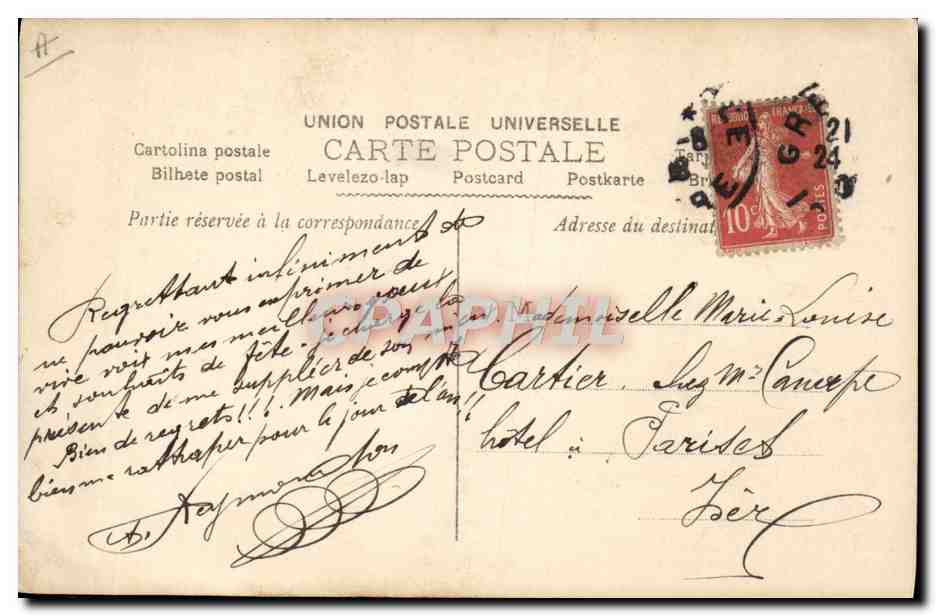 A
UNION POSTALE UNIVERSELLE
Cartolina postale
CARTE POSTALE
Bilhete postal
Levelezo-lap
Postcard
Postkarte
Partie réservée à la correspondance
Adresse du destinat
REPUBLIQUE FRANÇAISE
10c
POSTES
8
21
24
Regrettant infiniment de
ne pouvoir vous exprimer de
vive voix mes meilleurs voeux
et souhaits de fête je charge la
présente de me suppléer de son mieux
Bien de regrets!!! Mais je compte
bien me rattraper pour le jour de l'an!!
A. Reymond
Mademoiselle Marie-Louise
Cartier, chez Mr
hôtel à
Isère
CPAPHIL